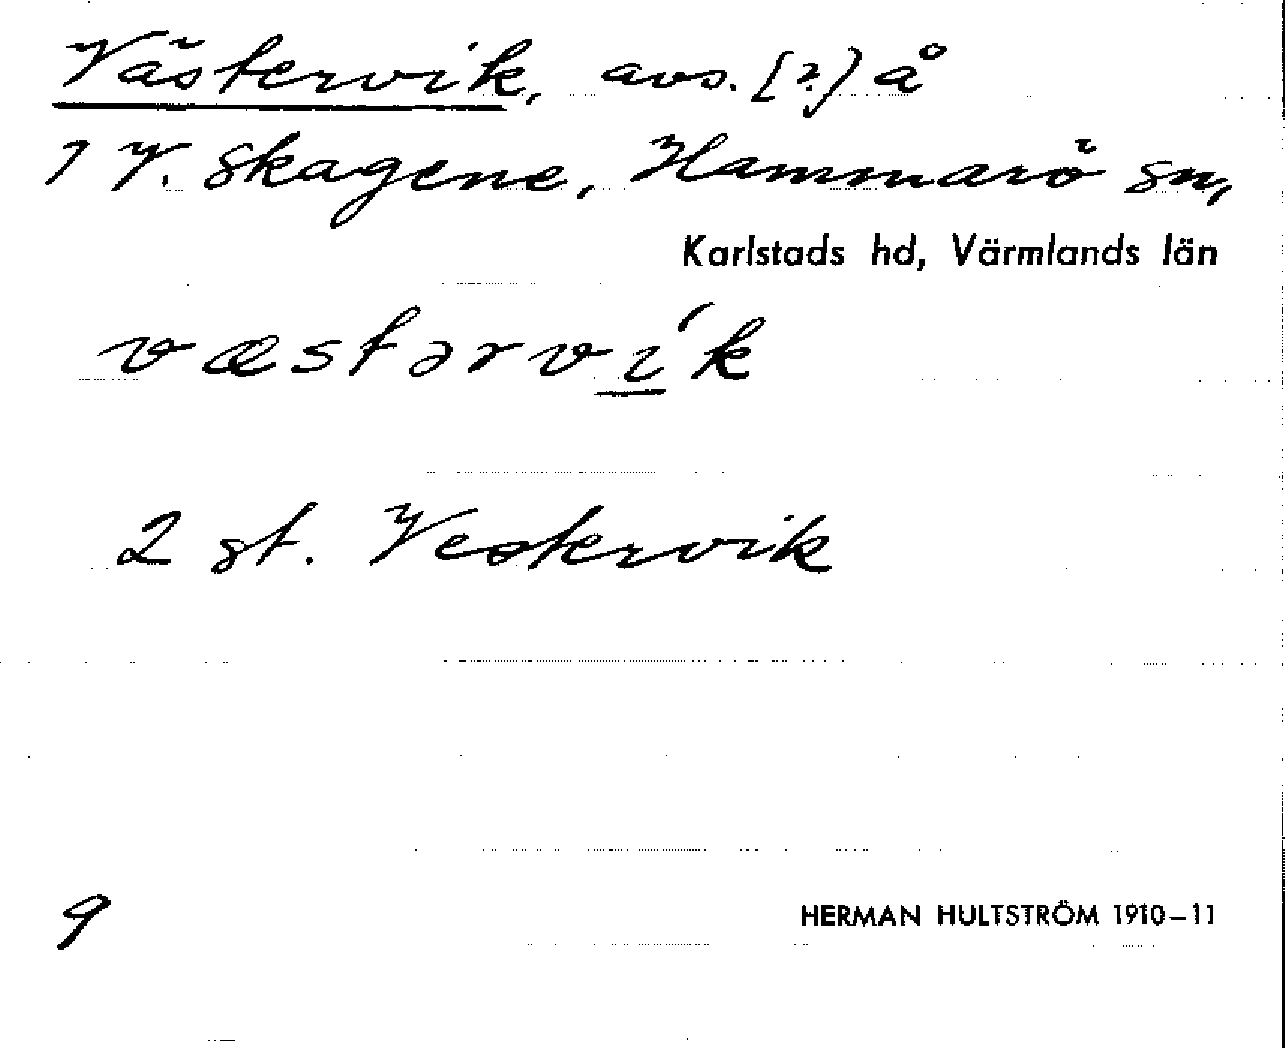 Västervik, avs. [?] å
1 V. Skagene, Hammarö sn,
Karlstads hd, Värmlands län
væstərví̲k
2 st. Vestervik
9
HERMAN HULTSTRÖM 1910–11